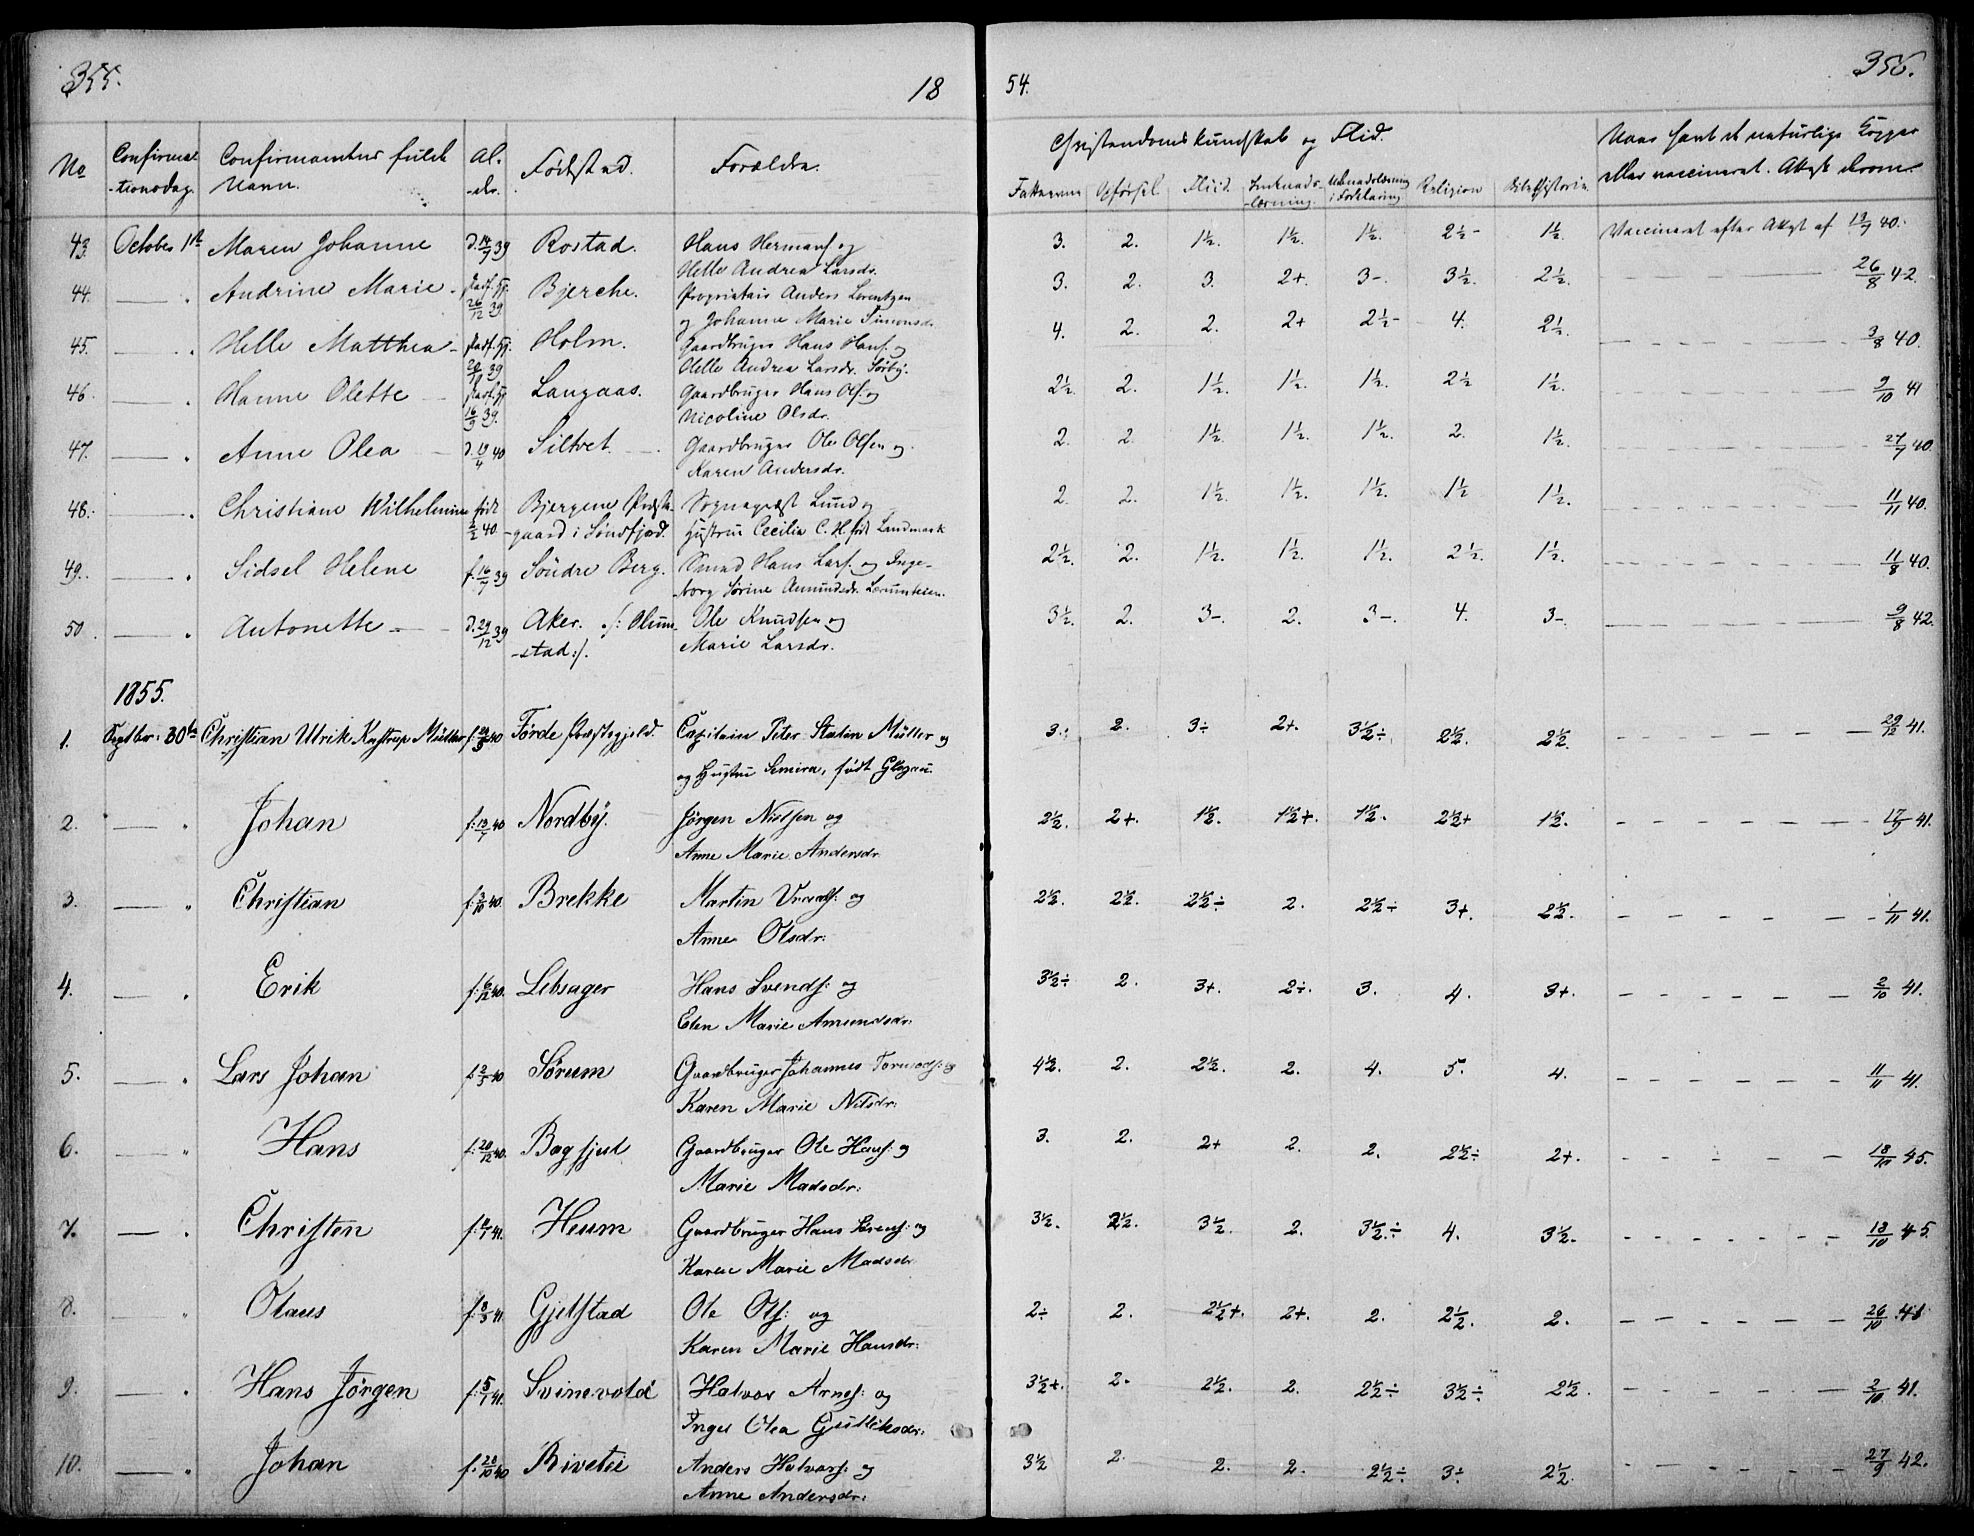 355.
18
54.
356.
No
Confirma-
-tionsdag.
Confirmantens fulde
Navn.
Al-
-der.
Fødested.
Forældre.
Christendomskundskab og Flid.
Fatteevne
Opførsel.
Fliid.
Indenads-
-læsning.
Udenadslæsning
i Forklaring
Religion
Bibelhistorie.
Naar havt de naturlige Kopper
eller vaccineret. Attest derom.
43. October 1ste Maren Johanne d. 14/9 39 Rostad. Hans Hermansf og
Helle Andrea Larsdr.
3. 2. 1½. 1½. 1½. 2½- 1½. Vaccineret efter Attest af 19/7 40.
44. — " Andrine Marie - 26/12 39. Bjerche. Proprietair Anders Lorentzen
og Johanne Marie Simonsdr.
3. 2. 3. 2+. 3-. 3½. 2½. 26/8 42.
45. — " Helle Matthea - 39 Holm. Gaardbruger Hans Hansf. og
Helle Andrea Larsdr. Sørby.
4. 2. 2. 2+ 2½- 4. 2½. 3/8 40.
46. — " Hanne Olette - 16/9 39. Langaas. Gaardbruger Hans Olsf. og
Nicoline Olsdr.
2½. 2. 1½. 1½. 1½. 2½ 1½. 9/10 41
47. — " Anne Olea - d. 19/4 40 Siltvet. Gaardbruger Ole Olsen og
Karen Andersdr.
2. 2. 1½. 1½. 1½. 2. 1½. 27/7 40.
48. — " Christiane Wilhelmine født 2/2 40. Bjergene Præste- Sognepræst Lund og
-gaard i Søndfjord. Hustrue Cecilia C. H. født Landmark
2. 2. 1½. 1½. 1½. 1½ 1½. 11/11 40.
49. — " Sidsel Helene f. 16/7 39 Søndre Berg. Smed Hans Larsf. og Inge-
-borg Sørine Amundsdr. Lærumteien.
2½. 2. 1½. 1½. 1½. 2½. 1½. 11/8 40.
50. — " Antonette - d. 29/12 39 Aker. /: Olum- Ole Knudsen og
-stad :/. Marie Larsdr.
3½. 2. 3-. 2. 3-. 4. 3-. 9/8 42.
1855.
1. Septbr: 30te Christian Ulrik Kastrup Müller 40 Førde Præstegjeld. Capitain Peter Statin Müller og
og Hustru Semira, født Glogau.
3. 2. 3÷ 2+. 3½÷ 2½. 2½. 29/12 41.
2. — " Johan f: 13/7 40 Nordby. Jørgen Nielsen og
Anne Marie Andersdr.
2½. 2+. 1½. 1½+. 1½. 2½+ 1½. 17/9 41.
3. — " Christian f: 3/10 40. Brekke Martin og
Anne Olsdr:
2½. 2½. 2½÷ 2. 2½÷ 3+. 2½. 1/11 41.
4. — " Erik f: 6/12 40. Lebsager Hans Svends: og
Elen Marie Amundsdr:
3½÷ 2. 3+. 2÷. 3. 4. 3+. 2/10 41.
5. — " Lars Johan f. 2/5 40 Sørum Gaardbruger Johannes Tormods: og
Karen Marie Nilsdr:
4½. 2. 2½. 2. 4. 5. 4. 11/11 41.
6. — " Hans f. 20/12 40. Bagsjøet Gaardbruger Ole Hans: og
Marie Madsdr:
3. 2. 2+ 2. 2. 2½÷ 2+. 18/10 45.
7. — " Christen 41. Heum Gaardbruger Hans Sørens: og
Karen Marie Madsdr.
3½. 2½. 3½. 2. 3½÷ 4. 3½. 18/10 45.
8. — " Olaus f: 8/3 41 Gjelstad Ole Ols: og
Karen Marie Hansdr:
2÷ 2. 2½+. 2+. 2. 2½. 2. 26/10.
9. — " Hans Jørgen f: 5/1 41. Svinevold Halvor Arnes: og
Inger Olea Gulliksdr:
3½+. 2. 2½. 2. 2½÷ 3½÷ 2½. 2/10 41.
10. — " Johan f: 20/10 40 Rivetie Anders Halvors: og
Anne Andersdr:
3½ 2. 2. 2. 2½÷ 3÷ 2½. 27/9 42.